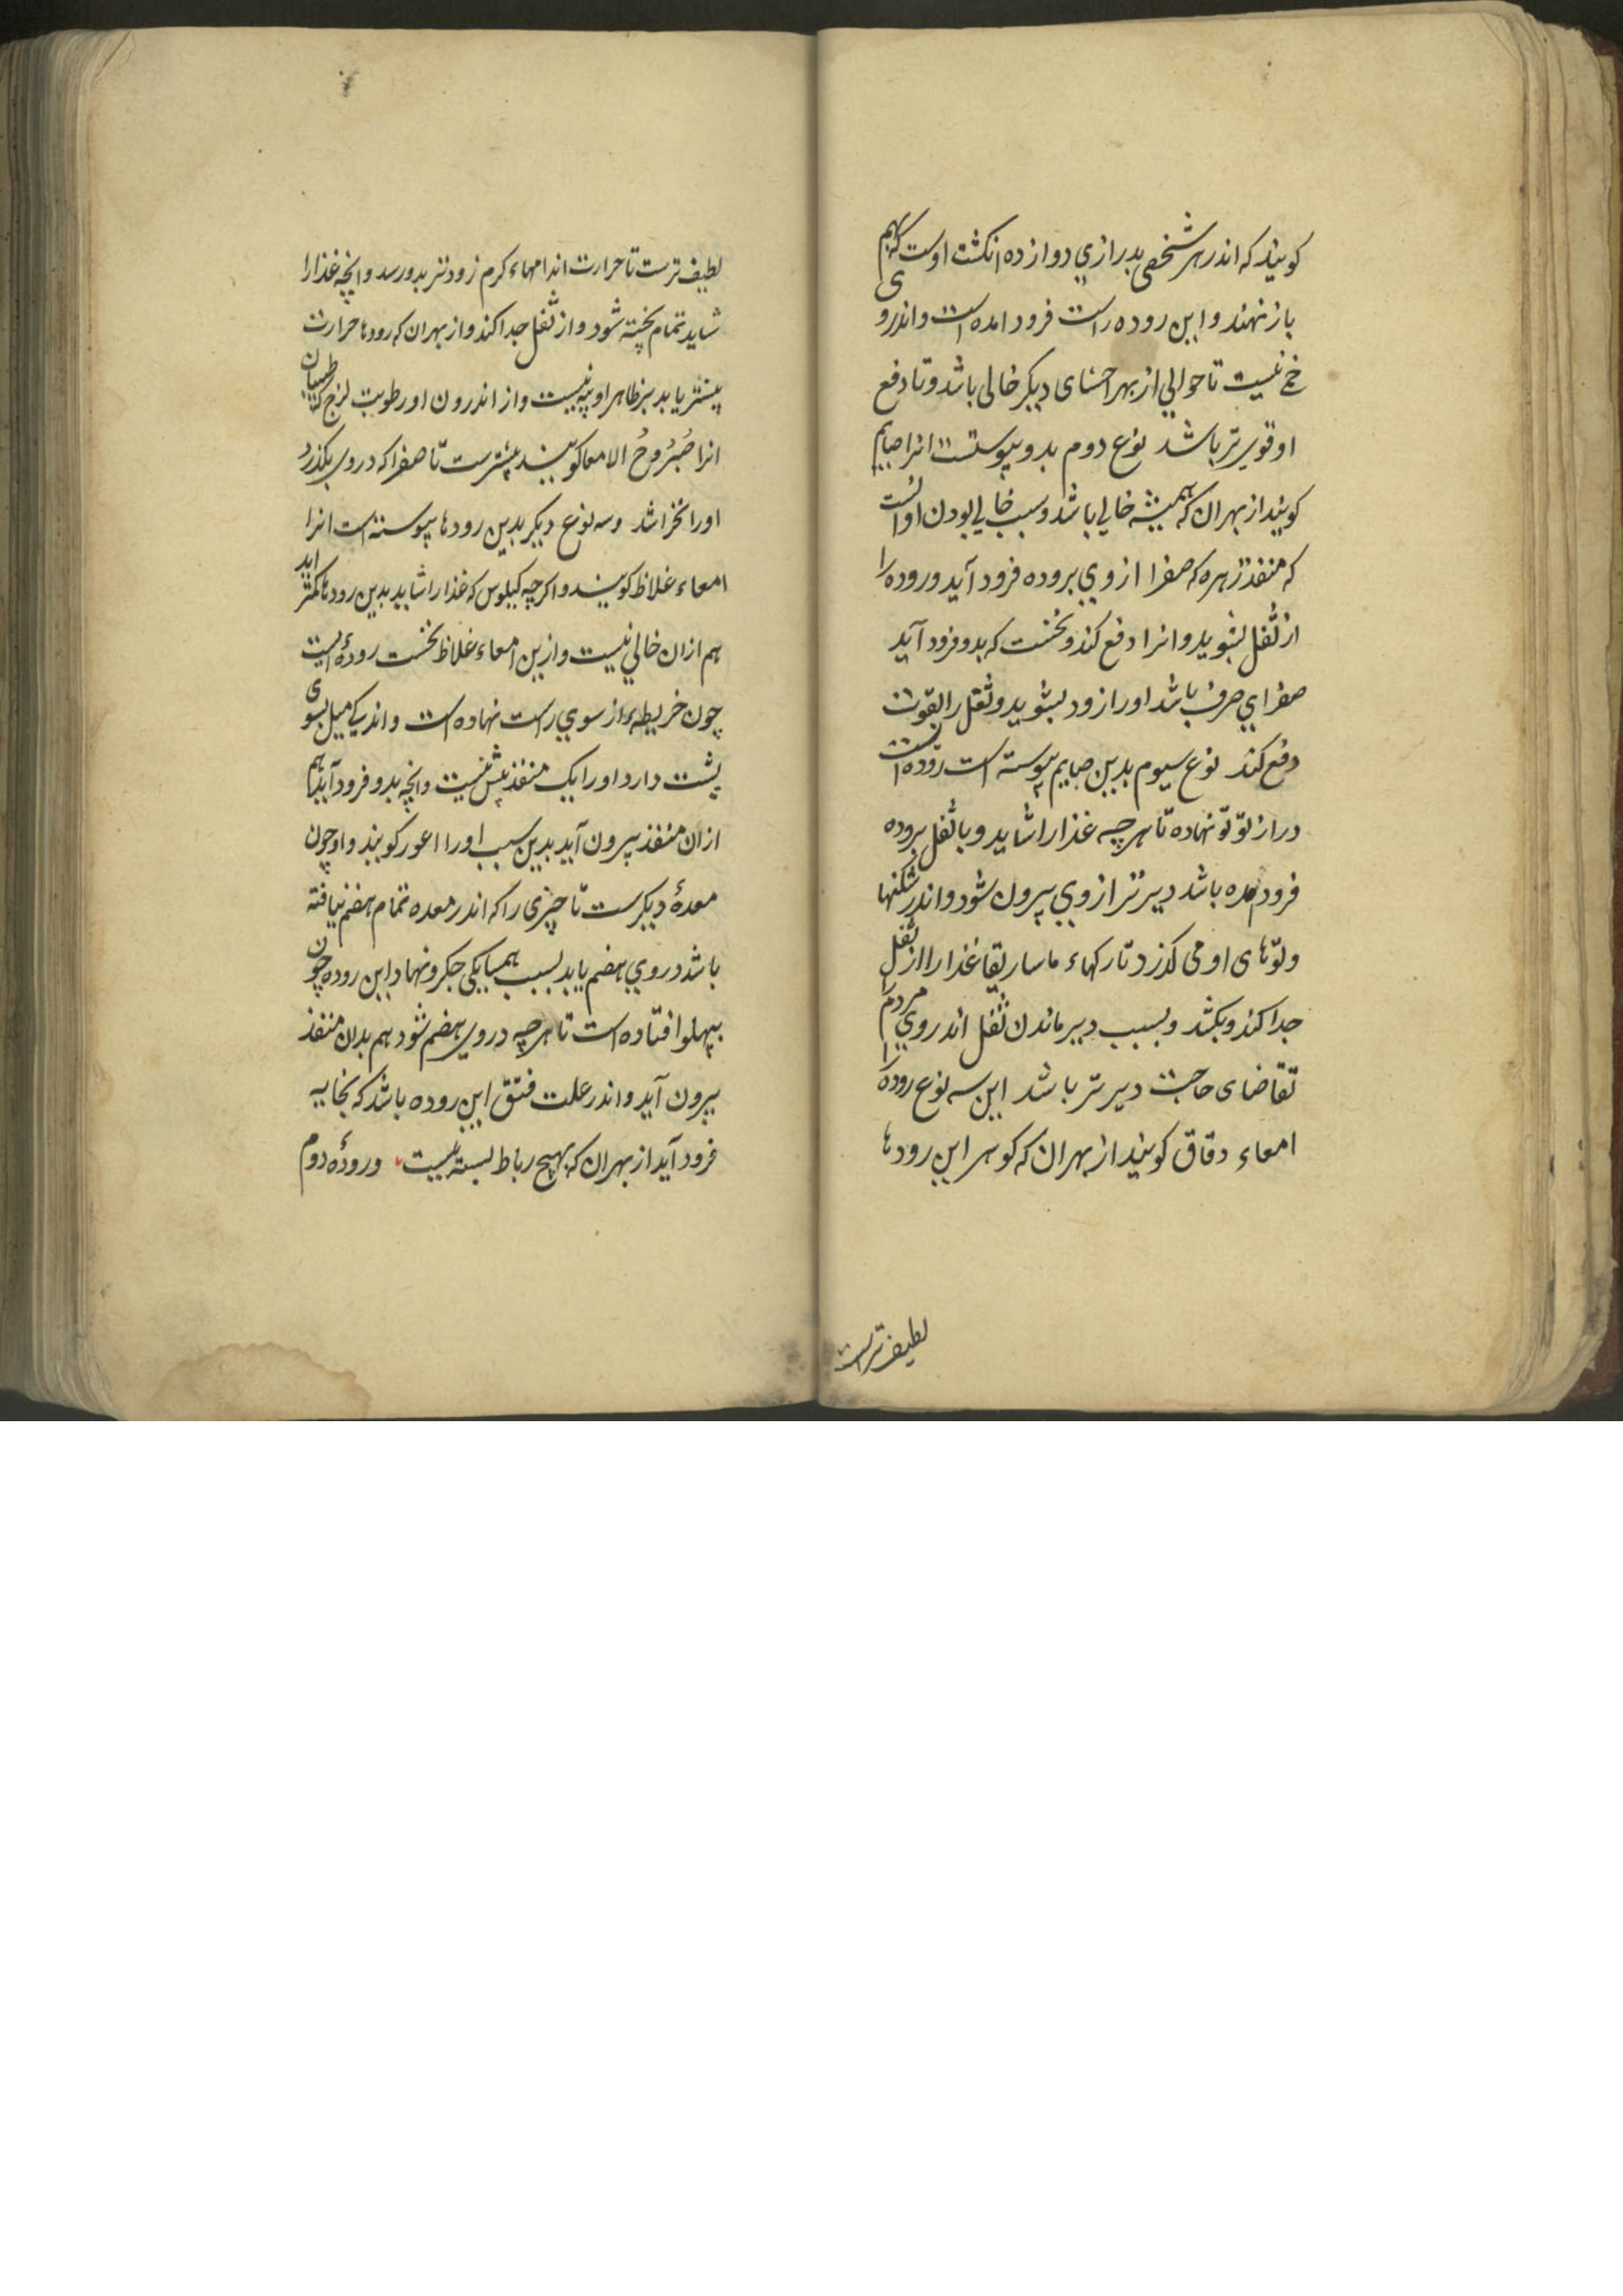 کویند که اندر هر شخصی بدرازي دوازده انکشت اوست کهم
باز نهند و این روده راست فرود امده است و اندروی
خم نیست تا حوالي از بهر احشای دیکر خالی باشد و تا دفع
او قوی تر باشد نوع دوم بدو پیوستست انرا صایم
کویند از بهر ان که همیشه خالي باشد و سبب خالي بودن او انست
که منفذ زهره که صفرا از وي بروده فرود آید و روده را
از ثفل بشوید و انرا دفع کند و نخست که بدو فرود آید
صفراي صرف باشد او را زود بشوید و ثفل را بقوت
دفع کند نوع سیوم بدین صایم پیوسته است روده است
دراز تو تو نهاده تا هر چه غذا را شاید و با ثفل بروده
فرود امده باشد دیرتر از وي بیرون شود و اندر شکنها
و توّهای او می کذرد تا رکهاء ماساریقا غذا را از ثفل
جدا کند و بکشد و بسبب دیر ماندن ثفل اندر وي مردم را
تقاضای حاجت دیرتر باشد این سه نوع روده را
امعاء دقاق کویند از بهر ان که کوهر این رودها
لطیف ترست
لطیف ترست تا حرارت اندامهاء کرم زودتر بدو رسد و انچه غذا را
شاید تمام پخته شود و از ثفل جدا کند و از بهر ان که رودها حرارت
بیشتر یابد بر ظاهر او پیه نیست و از اندرون او رطوبت لزج طبیبان
انرا صُبْرُوحُ الامعا کویند بیشترست تا صفرا که در وی بکذرد
او را نخراشد و سه نوع دیکر بدین رودها پیوسته است انرا
امعاء غلاظ کویند و اکرچه کیلوس که غذا را شاید بدین رودها کمتر اید
هم از ان خالي نیست و ازین امعاء غلاظ نخست رودهٔ است
چون خریطهء از سوي راست نهاده است و اندکي میل بسوی
پشت دارد او را یک منفذ بیش نیست و انچه بدو فرود آید هم
از ان منفذ بیرون آید بدین سبب او را اعور کویند و او چون
معدهٔ دیکرست تا چیزی را که اندر معده تمام هضم نیافته
باشد در وي هضم یابد بسبب همسایکی جکر و نهاد این روده چون
بپهلو افتاده است تا هر چه در وی هضم شود هم بدان منفذ
بیرون آید و اندر علت فتق این روده باشد که بخایه
فرود آید از بهر ان که بهیچ رباط بسته نیست ورودهٔ دوم